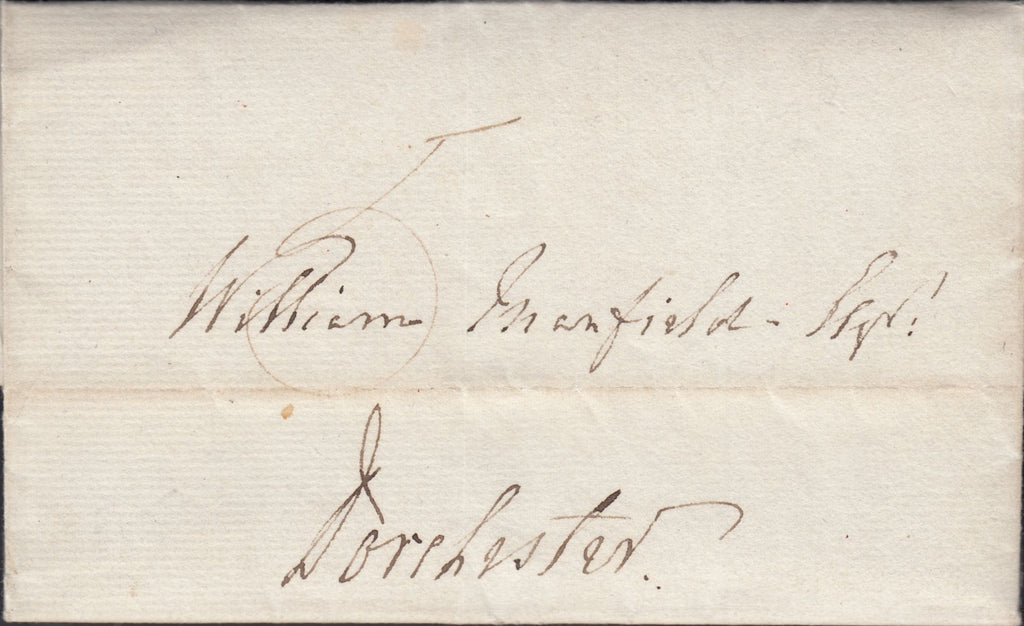 5
William Manfield - Esqr.
Dorchester.